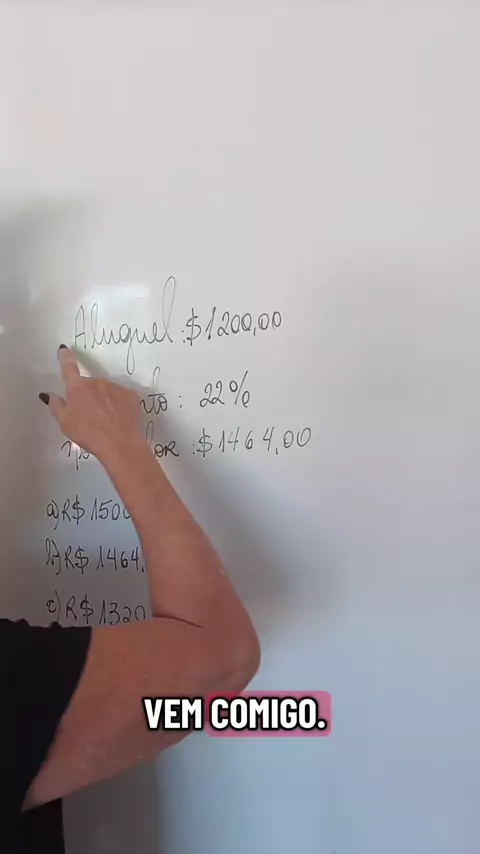 Aluguel : $ 1200,00
: 22%
: $ 1464,00
a) R$ 1500
b) R$ 1464,
c) R$ 1320
VEM COMIGO.